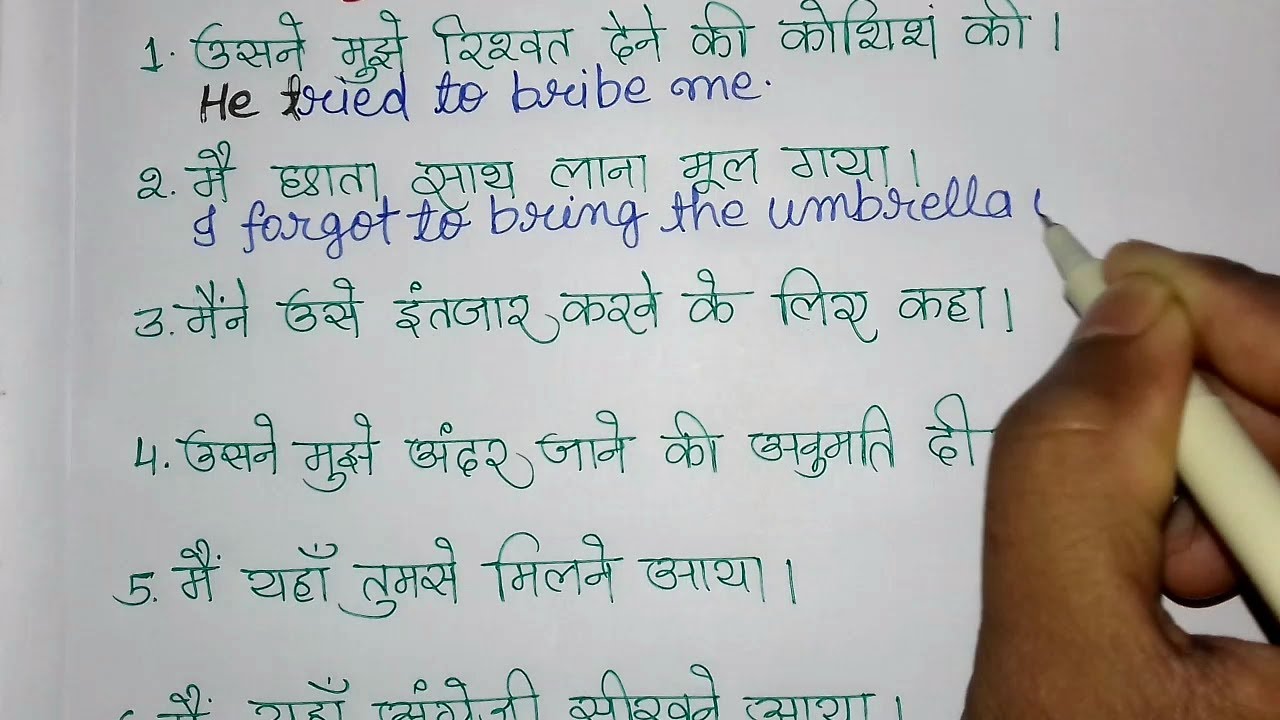 1. उसने मुझे रिश्वत देने की कोशिश की ।
He tried to bribe me.
2. मैं छाता साथ लाना भूल गया ।
I forgot to bring the umbrella
3. मैंने उसे इंतजार करने के लिए कहा ।
4. उसने मुझे अंदर जाने की अनुमति दी
5. मैं यहाँ तुमसे मिलने आया ।
मैं यहाँ अंग्रेजी सीखने आया ।